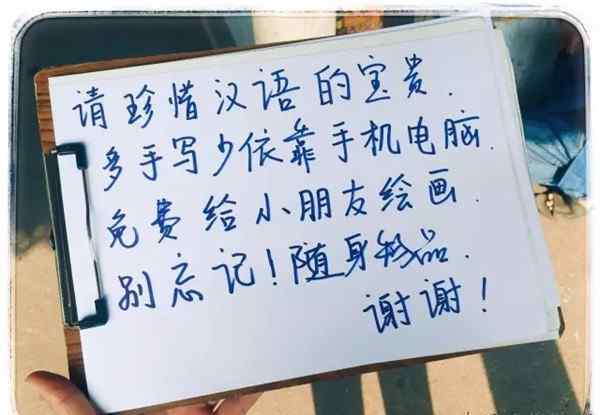 请珍惜汉语的宝贵.
多手写少依靠手机电脑.
免费给小朋友绘画.
别忘记！随身物品.
谢谢！